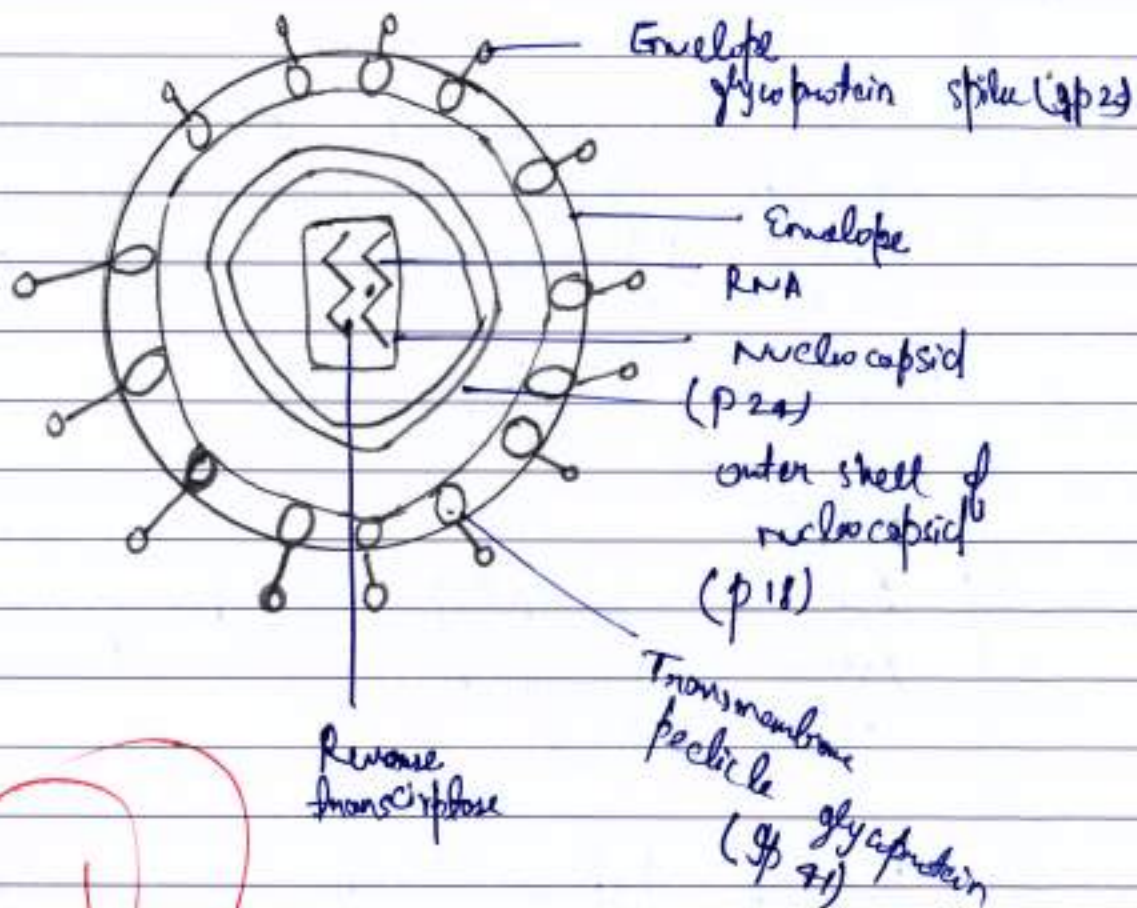 Envelope
glycoprotein spike (gp 2
Envelope
RNA
Nucleocapsid
(p 24)
outer shell of
nucleocapsid
(p 18)
Transmembrane
pedicle glycoprotein
(gp 41)
Reverse
transcirptase